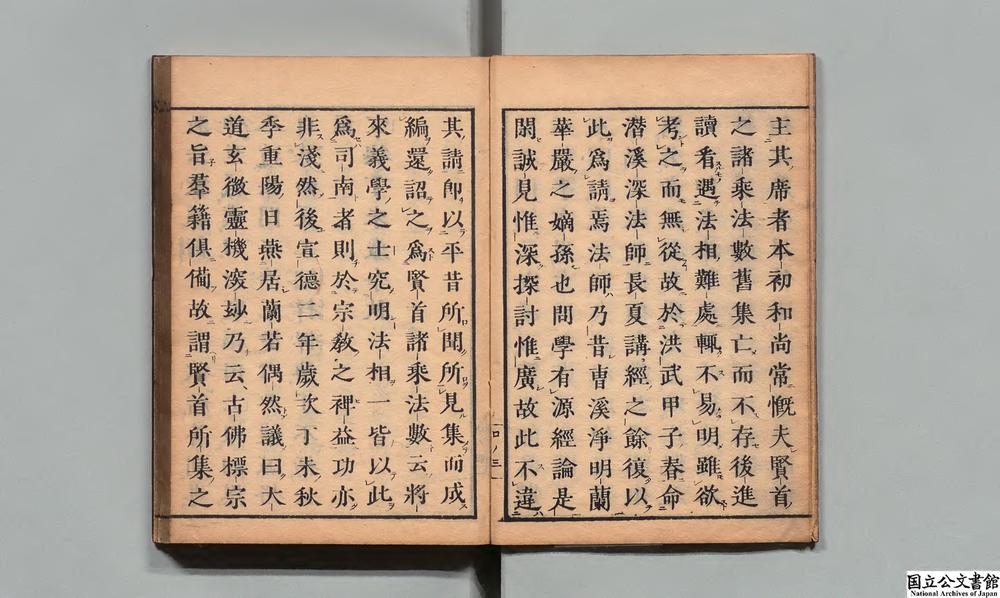 主其席者本初和尚常慨夫賢首
之諸乘法數舊集亡而不存後進
讀看遇法相難處輒不易明雖欲
考之而無從故於洪武甲子春命
潛溪深法師長夏講經之餘復以
此爲請焉法師乃昔曺溪淨明蘭
華嚴之嫡孫也問學有源經論是
閑誠見惟深探討惟廣故此不違
其請卽以平昔所聞所見集而成
編還詔之爲賢首諸乘法數云將
來義學之士究明法相一皆以此
爲司南者則於宗敎之裨益功亦
非淺然後宣德二年歲次丁未秋
季重陽日燕居蘭若偶然議曰大
道玄微靈機深玅乃云古佛標宗
之旨羣籍俱備故謂賢首所集之
国立公文書館
National Archives of Japan